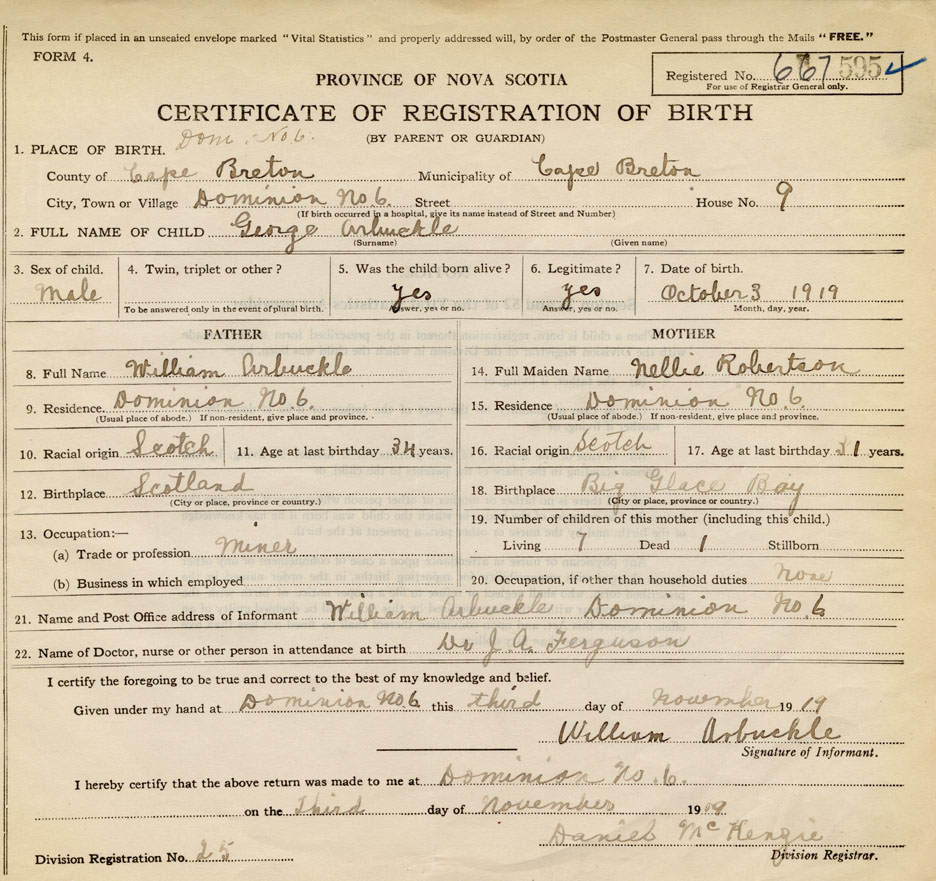 This form if placed in an unsealed envelope marked “Vital Statistics” and properly addressed will, by order of the Postmaster General pass through the Mails “FREE.”
FORM 4.
Registered No. 667 595
For use of Registrar General only.
PROVINCE OF NOVA SCOTIA
CERTIFICATE OF REGISTRATION OF BIRTH
Dom. No 6.
(BY PARENT OR GUARDIAN)
1. PLACE OF BIRTH.
County of Cape Breton Municipality of Cape Breton
City, Town or Village Dominion No 6. Street House No. 9
(If birth occurred in a hospital, give its name instead of Street and Number)
2. FULL NAME OF CHILD George Arbuckle
(Surname) (Given name)
3. Sex of child. 4. Twin, triplet or other? 5. Was the child born alive? 6. Legitimate? 7. Date of birth.
Male yes yes October 3 1919
To be answered only in the event of plural birth. Answer, yes or no. Answer, yes or no. Month, day, year.
FATHER MOTHER
8. Full Name William Arbuckle 14. Full Maiden Name Nellie Robertson
9. Residence. Dominion No. 6. 15. Residence Dominion No 6.
(Usual place of abode.) If non-resident, give place and province. (Usual place of abode.) If non-resident, give place and province.
10. Racial origin Scotch 11. Age at last birthday 34 years. 16. Racial origin Scotch 17. Age at last birthday 31 years.
12. Birthplace Scotland 18. Birthplace Big Glace Bay
(City or place, province or country.) (City or place, province or country.)
13. Occupation:— 19. Number of children of this mother (including this child.)
(a) Trade or profession Miner Living 7 Dead 1 Stillborn
(b) Business in which employed 20. Occupation, if other than household duties none
21. Name and Post Office address of Informant William Arbuckle Dominion No. 6
22. Name of Doctor, nurse or other person in attendance at birth Dr J. A. Ferguson
I certify the foregoing to be true and correct to the best of my knowledge and belief.
Given under my hand at Dominion No 6. this third day of November 1919
William Arbuckle
Signature of Informant.
I hereby certify that the above return was made to me at Dominion No. 6.
on the Third day of November 19
Daniel McKenzie
Division Registrar.
Division Registration No. 25